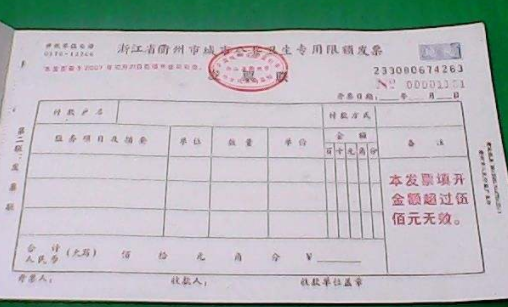 浙江省衢州市城市公共卫生专用限额发票
发票联
233080674263
开票日期: 年 月 日
付款户名 付款方式
服务项目及摘要 单位 数量 单价 金额 备注
百 十 元 角 分
本发票填开
金额超过伍
佰元无效。
合计
人民币 (大写) 佰 拾 元 角 分 ¥
开票人: 收款人: 收款单位盖章
第二联:发票联